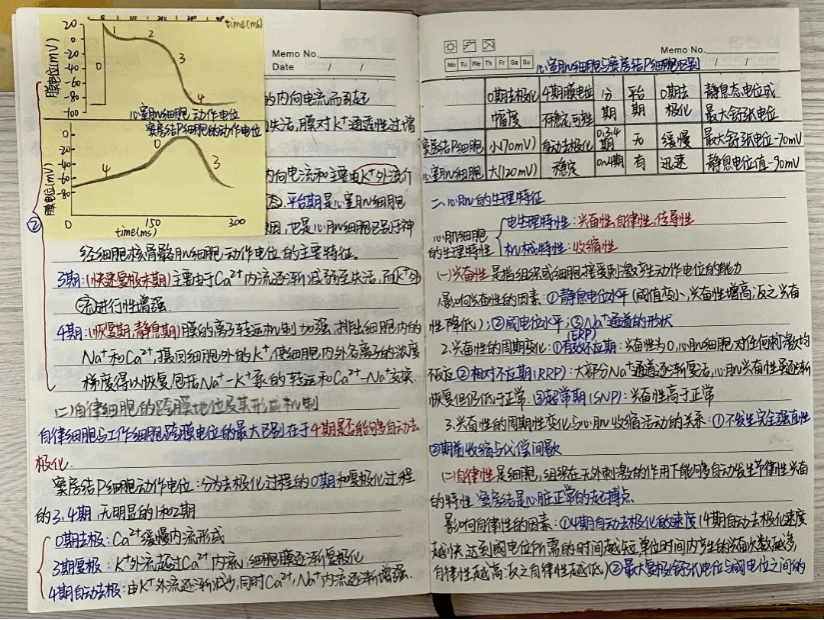 time(ms)
膜电位(mV)
20
0
-20
-40
-60
-80
-100
0
1
2
3
4
心室肌细胞动作电位
窦房结P细胞的动作电位
膜电位(mV)
0
-20
-40
-60
-80
4
0
3
0
150
300
time(ms)
Memo No.
Date / /
的内向电流而引起
失活,膜对K+通透性过增
内向电流和主要由K+外流行
平台期是心室肌细胞
因,也是心肌细胞区别于神
②
经细胞核骨骼肌细胞动作电位的主要特征。
3期:(快速复极末期)主要由于Ca2+内流逐渐减弱至失活,而K+外
流进行性增强.
4期:(恢复期,静息期)膜的离子转运机制加强,排出细胞内的
Na+和Ca2+,摄回细胞外的K+,使细胞内外各离子的浓度
梯度得以恢复,包括Na+-K+泵的转运和Ca2+-Na+交换.
(二)自律细胞的跨膜地位及其形成机制
自律细胞与工作细胞跨膜电位的最大区别在于4期是否能够自动去
极化.
窦房结P细胞动作电位:分为去极化过程的0期和复极化过程
的3,4期,无明显的1和2期
0期去极:Ca2+缓慢内流形成
3期复极:K+外流超过Ca2+内流,细胞膜逐渐复极化
4期自动去极:由K+外流逐渐减少,同时Ca2+,Na+内流逐渐增强.
Mo Tu We Th Fr Sa Su
Memo No.
Date / /
心室肌细胞与窦房结P细胞区别
0期去极化 4期膜电位 分 平台 0期去 静息态电位或
幅度 不稳定与性 期 期 极化 最大舒张电位
窦房结P细胞 小(70mV) 自动去极化 0,3,4期 无 缓慢 最大舒张电位-70mV
心室肌细胞 大(120mV) 稳定 0~4期 有 迅速 静息电位值-90mV
二、心肌的生理特征
心肌细胞的生理特性
电生理特性:兴奋性,自律性,传导性
机械特性:收缩性
(一)兴奋性是指组织或细胞接受刺激产生动作电位的能力
1.影响兴奋性的因素:①静息电位水平(阈值变小,兴奋性增高;反之,兴奋
性降低);②阈电位水平;③Na+通道的形状
2.兴奋性的周期变化:①有效不应期(ERP):兴奋性为0,心肌细胞对任何刺激均
不应②相对不应期(RRP):大部分Na+通道逐渐复活,心肌兴奋性虽逐渐
恢复但仍低于正常③超常期(SNP):兴奋性高于正常
3.兴奋性的周期性变化与心肌收缩活动的关系:①不发生完全强直性
②期前收缩与代偿间歇
(二)自律性是细胞,组织在无外刺激的作用下能够自动发生节律性兴奋
的特性 窦房结是心脏正常的起搏点
影响自律性的因素:①4期自动去极化的速度(4期自动去极化速度
越快,达到阈电位所需的时间越短,单位时间内产生的兴奋次数越多,
自律性越高;反之自律性越低)②最大复极舒张电位与阈电位之间的